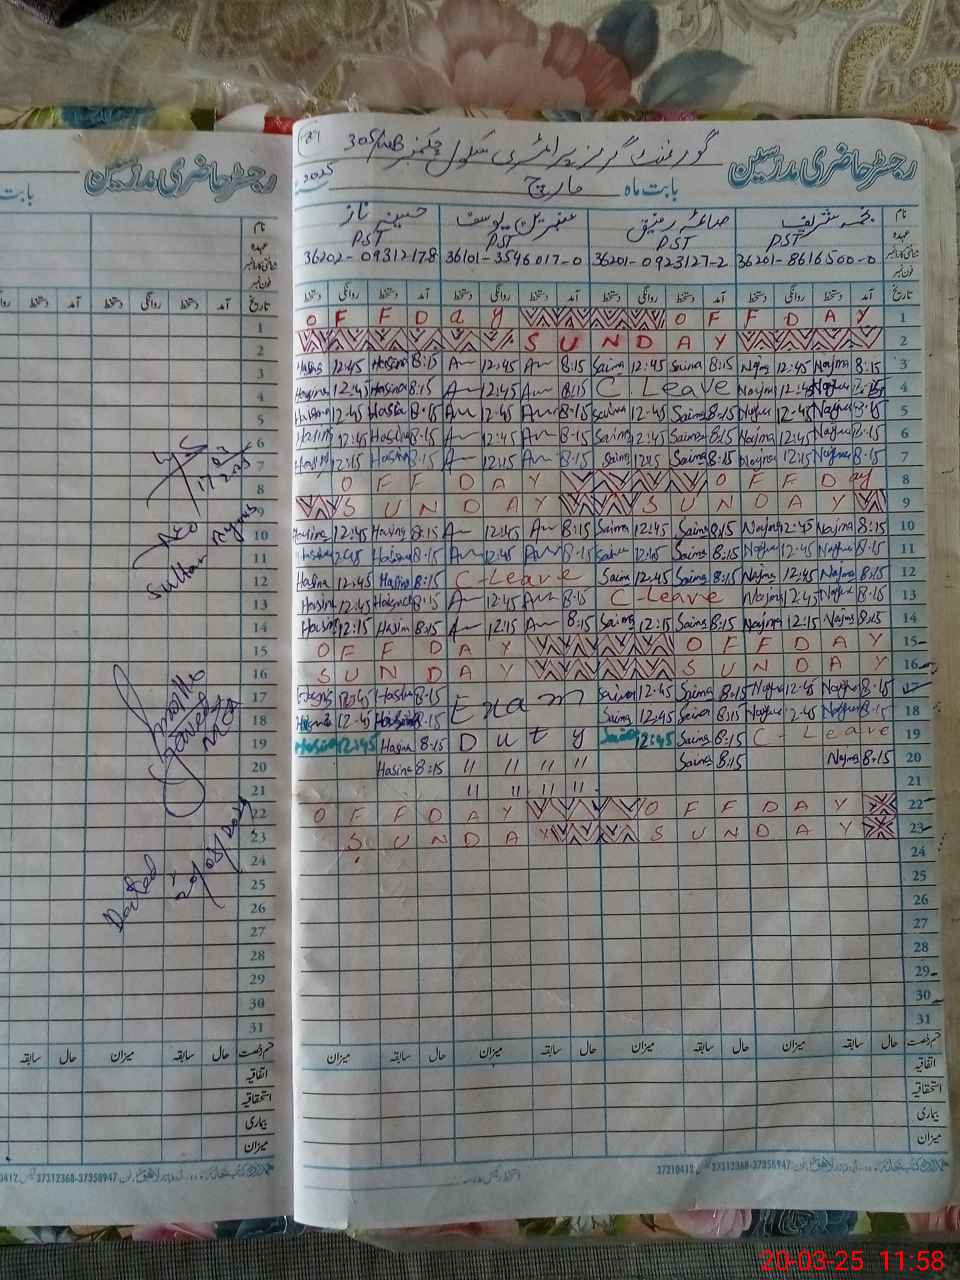 رجسٹر حاضری مدرسین
گورنمنٹ گرلز پرائمری سکول چکنمبر 305/WB
بابت ماہ مارچ 2025
نام نجمہ شریف صائمہ رفیق عنبرین یوسف حسینہ ناز
عہدہ PST PST PST PST
36201-8616500-0 36201-0923127-2 36101-3546017-0 36202-09312178
تاریخ آمد دستخط روانگی دستخط آمد دستخط روانگی دستخط آمد دستخط روانگی دستخط آمد دستخط روانگی دستخط
OFF DAY OFF DAY 1
SUNDAY 2
Hasina 12:45 Hasina 8:15 12:45 8:15 Saima 12:45 Saima 8:15 Najma 12:45 Najma 8:15 3
Hasina 12:45 Hasina 8:15 12:45 8:15 C. Leave Najma 12:45 Najma 8:15 4
Hasina 12:45 Hasina 8:15 12:45 8:15 Saima 12:45 Saima 8:15 Najma 12:45 Najma 8:15 5
Hasina 12:45 Hasina 8:15 12:45 8:15 Saima 12:45 Saima 8:15 Najma 12:45 Najma 8:15 6
Hasina 12:15 Hasina 8:15 12:15 8:15 Saima 12:15 Saima 8:15 Najma 12:15 Najma 8:15 7
OFF DAY OFF DAY 8
SUNDAY SUNDAY 9
Hasina 12:45 Hasina 8:15 12:45 8:15 Saima 12:45 Saima 8:15 Najma 12:45 Najma 8:15 10
Hasina 12:45 Hasina 8:15 12:45 8:15 Saima 12:45 Saima 8:15 Najma 12:45 Najma 8:15 11
Hasina 12:45 Hasina 8:15 C-Leave Saima 12:45 Saima 8:15 Najma 12:45 Najma 8:15 12
Hasina 12:45 Hasina 8:15 12:45 8:15 C-Leave Najma 12:45 Najma 8:15 13
Hasina 12:15 Hasina 8:15 12:15 8:15 Saima 12:15 Saima 8:15 Najma 12:15 Najma 8:15 14
OFF DAY OFF DAY 15
SUNDAY SUNDAY 16
Hasina 12:45 Hasina 8:15 Exam Saima 12:45 Saima 8:15 Najma 12:45 Najma 8:15 17
Hasina 12:45 Hasina 8:15 Saima 12:45 Saima 8:15 Najma 12:45 Najma 8:15 18
Hasina 12:45 Hasina 8:15 Duty Saima 12:45 Saima 8:15 C-Leave 19
Hasina 8:15 " " " " Saima 8:15 Najma 8:15 20
" " " " 21
OFF DAY OFF DAY 22
SUNDAY SUNDAY 23
24
25
26
27
28
29
30
31
قسم رخصت حال سابقہ میزان حال سابقہ میزان حال سابقہ میزان حال سابقہ میزان
اتفاقیہ
استحقاقیہ
بیماری
میزان
37312368-37358947
37210412
رجسٹر حاضری مدرسین
بابت
نام
عہدہ
تاریخ آمد دستخط روانگی دستخط آمد دستخط
1
2
3
4
5
6
7
8
9
10
11
12
13
14
15
16
17
18
19
20
21
22
23
24
25
26
27
28
29
30
31
AEO
Sultan
Dated
قسم رخصت حال سابقہ میزان حال سابقہ
اتفاقیہ
استحقاقیہ
بیماری
میزان
37312368-37358947
20-03-25 11:58